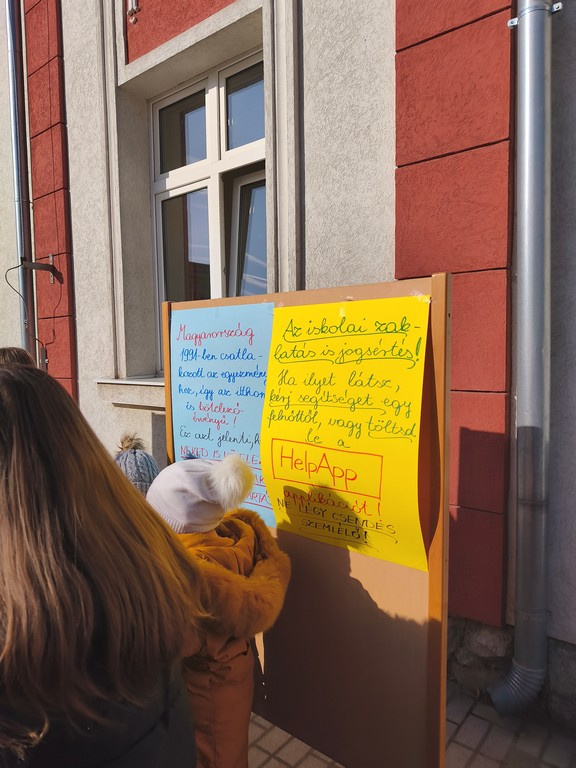 Magyarország
1991-ben csatla-
kozott az egyezmény
hez, így az itthon
is kötelező
érvényű!
Ez azt jelenti, h
NEKED IS
Az iskolai zak-
latás is jogsértés!
Ha ilyet látsz,
kérj segítséget egy
felnőttől, vagy töltsd
le a
HelpApp
applikációt!
NE LÉGY CSENDES
SZEMLÉLŐ!